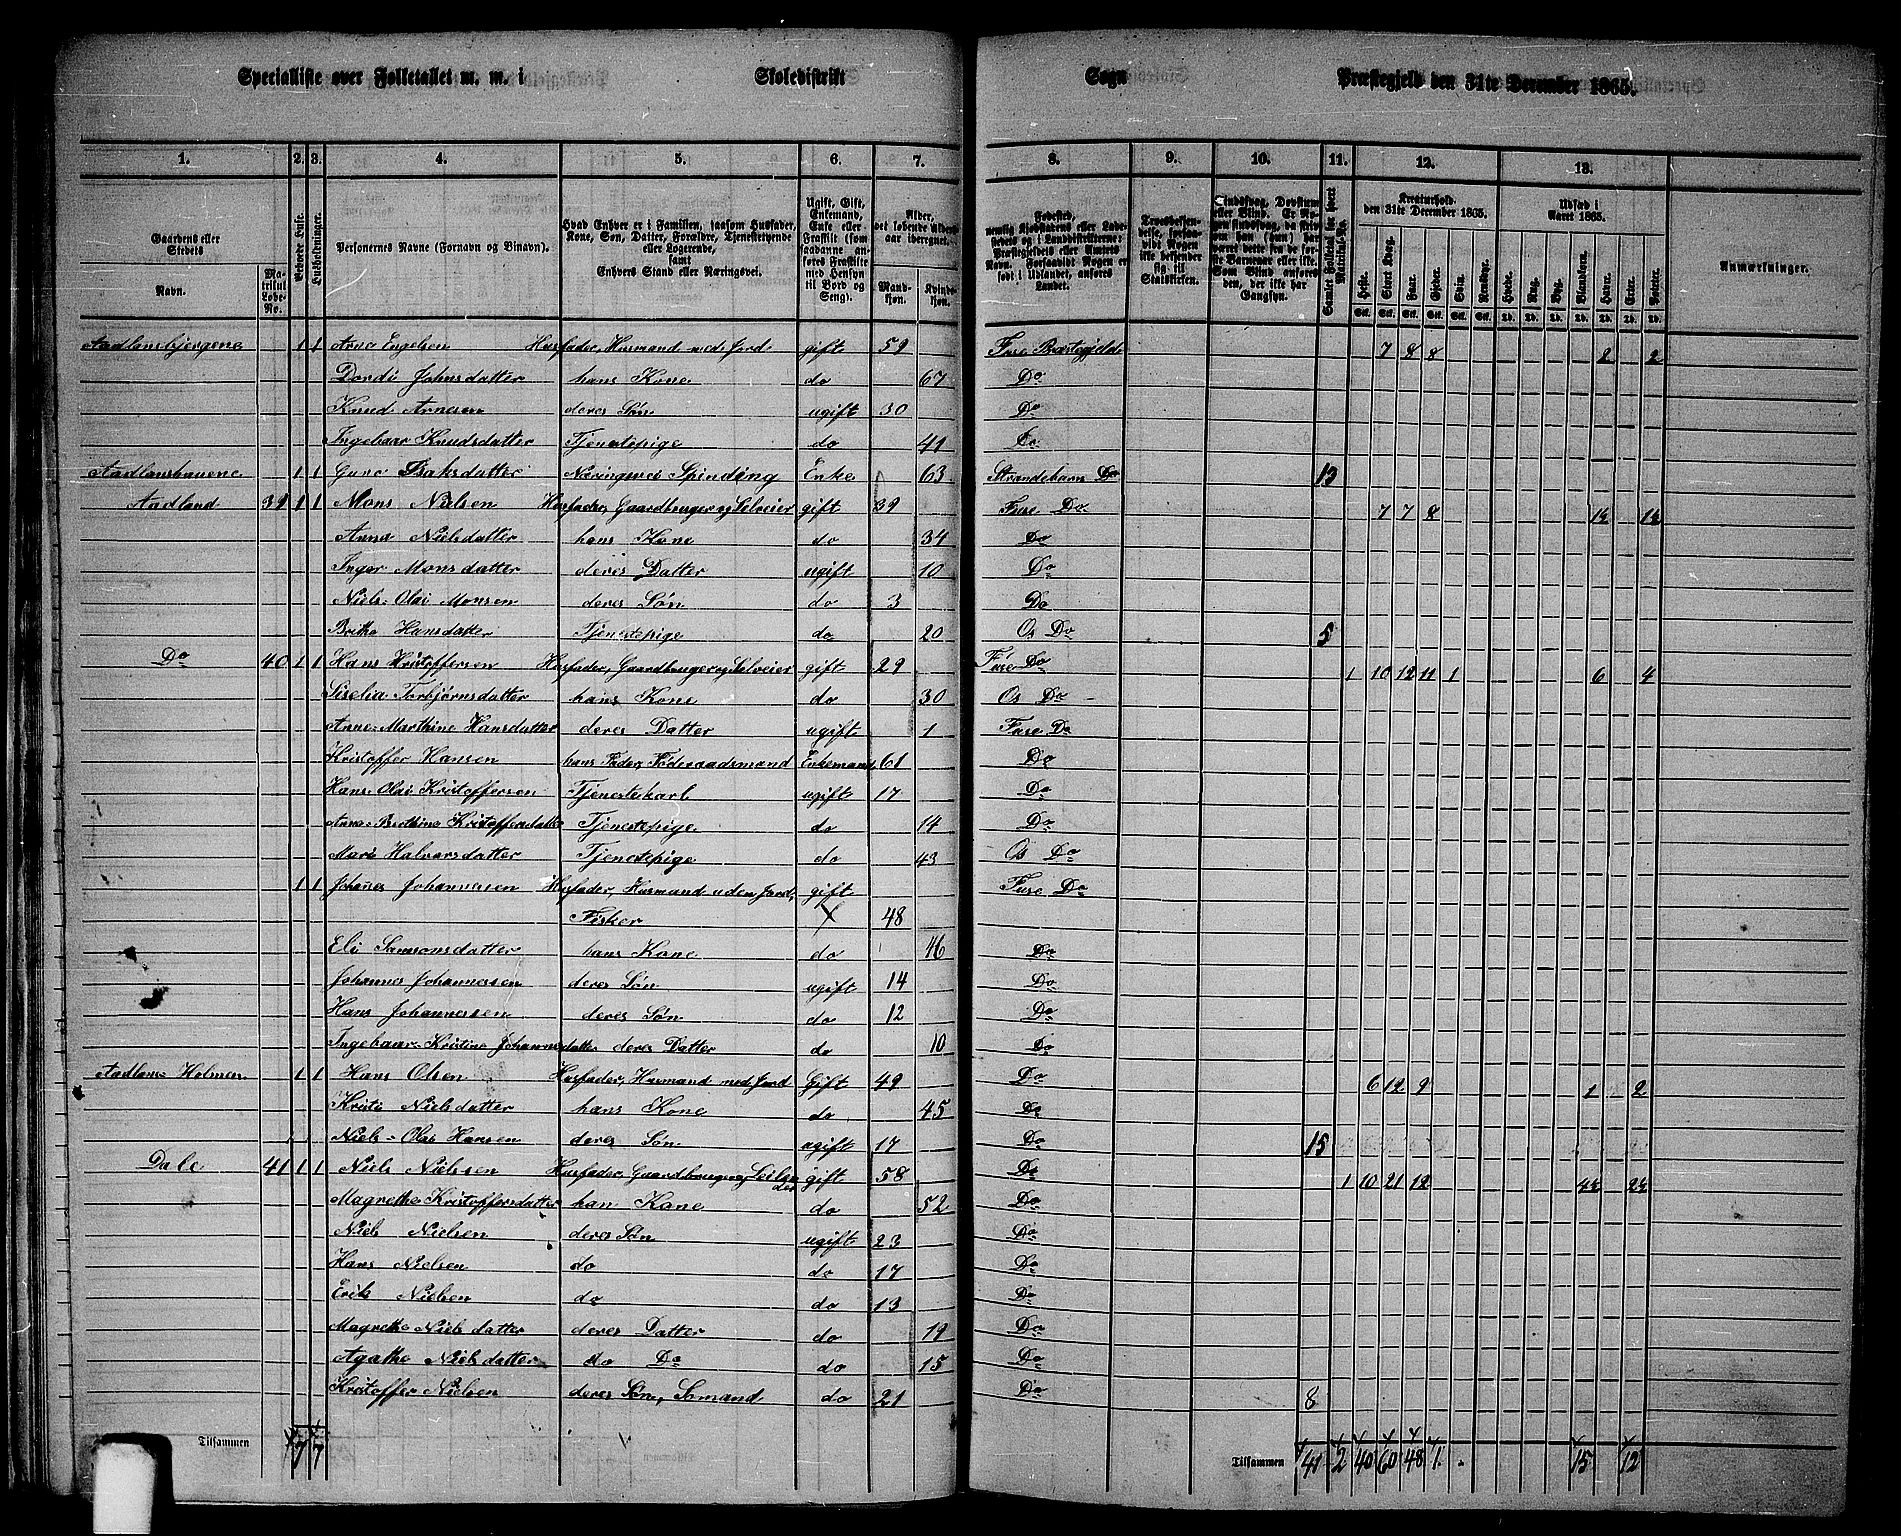 Specialliste over Folketallet m. m. i Skoledistrikt Sogn Præstegjeld den 31te December 1865.
1. 2. 3. 4. 5. 6. 7. 8. 9. 10. 11. 12. 13.
Gaardens eller Stedets Navn. Matrikul Løbe-No. Beboede Huse. Husholdninger. Personernes Navne (Fornavn og Binavn). Hvad Enhver er i Familien, saasom Husfader, Kone, Søn, Datter, Forældre, Tjenestetyende eller Logerende, samt Enhvers Stand eller Næringsvei. Ugift, Gift, Enkemand, Enke eller Fraskilt (som saadanne anføres Fraskilte med Hensyn til Bord og Seng). Alder, det løbende Alders-aar iberegnet. Mandkjøn. Kvindekjøn.
Kreaturhold den 31te December 1865. Udsæd i Aaret 1865. Anmærkninger.
Heste. Stort Kvæg. Faar. Gjeder. Svin. Rensdyr. Hvede. Rug. Byg. Blandkorn. Havre. Erter. Poteter.
Aadlansbjergene 1 1 Arne Engelsen Husfader, Husmand med Jord gift 59 Fuse Præstegjeld 7 8 8 2 2
Dordi Johnsdatter hans Kone do 67 Do
Knud Arnesen deres Søn ugift 30 Do
Ingebaar Knudsdatter Tjenestepige do 41 Do
Aadlanshauene 1 1 Gure Isaksdatter Næringsvei Spinding Enke 63 Strandebarm Do 13
Aadland 39 1 1 Mons Nielsen Husfader, Gaardbruger og Selveier gift 39 Fuse Do 7 7 8 1½ 1½
Anna Nielsdatter hans Kone do 34 Do
Inger Monsdatter deres Datter ugift 10 Do
Niels Olai Monsen deres Søn do 3 Do
Brithe Hansdatter Tjenestepige do 20 Os Do 5
Do 40 1 1 Hans Kristoffersen Husfader, Gaardbruger og Selveier gift 29 Fuse Do 1 10 12 11 1 6 4
Siselia Torbjørnsdatter hans Kone do 30 Os Do
Anne Marthine Hansdatter deres Datter ugift 1 Fuse Do
Kristoffer Hansen hans Fader, Føderaadsmand Enkemand 61 Do
Hans Olai Kristoffersen Tjenestekarl ugift 17 Do
Anne Berthine Kristoffersdatter Tjenestepige do 14 Do
Mari Halvarsdatter Tjenestepige do 43 Os Do
1 1 Johanes Johannessen Husfader, Husmand uden Jord, gift Fuse Do
Fisker 48
Eli Samsonsdatter hans Kone do 46 Do
Johannes Johannessen deres Søn ugift 14 Do
Hans Johannessen deres Søn do 12 Do
Ingebaar Kristine Johannesdatter deres Datter do 10 Do
Aadlans Holmen 1 1 Hans Olsen Husfader, Husmand med Jord Gift 49 Do 6 12 9 1 2
Kristi Nielsdatter hans Kone do 45 Do
Niels Olai Hansen deres Søn ugift 17 Do 15
Dale 41 1 1 Niels Nielsen Husfader, Gaardbruger og Leilænder gift 58 Do 1 10 21 12 4½ 2½
Magrethe Kristoffersdatter han Kone do 52 Do
Niels Nielsen deres Søn ugift 23 Do
Hans Nielsen do do 17 Do
Erik Nielsen do do 13 Do
Magrethe Nielsdatter deres Datter do 19 Do
Agathe Nielsdatter do Do do 15 Do
Kristoffer Nielsen deres Søn, Sømand do 21 Do 8
Tilsammen 7 7 Tilsammen 41 2 40 60 48 1 15 12